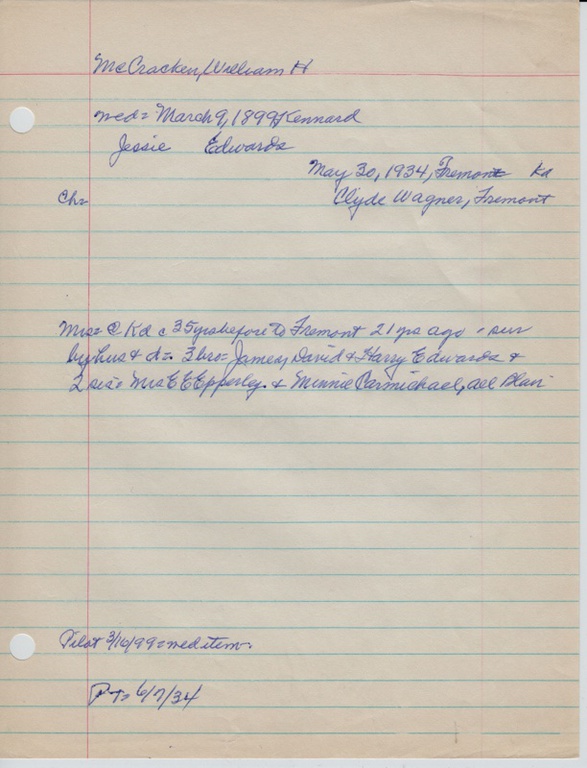 McCracken, William H
wed= March 9, 1899, Kennard
Jessie Edwards
May 30, 1934, Fremont Kd
Ch= Clyde Wagner, Fremont
Mrs= @ Kd c 35 yrs before to Fremont 21 yrs ago - sur
by hus & d= 3 bro= James, David & Harry Edwards &
2 sis= Mrs E E Epperley & Minnie Carmichael, all Blair
Pilot 3/16/99= wed item.
6/7/34